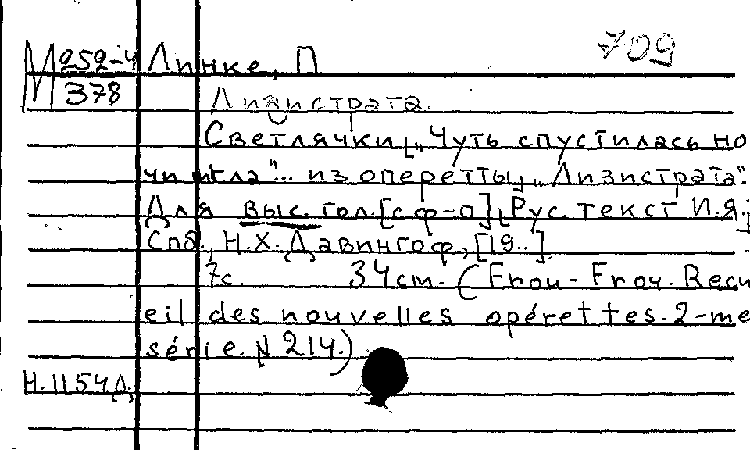 709
М 252-4 Линке, П
378
Лизистрата.
Светлячки [„Чуть спустилась но
чи мгла"... из оперетты] „Лизистрата".
Для выс. гол. [с ф-п] [Рус. текст И.Я.]
Спб., Н.Х. Давингоф, [19..]
7с. 34 см. (Frou-Frou. Recu
eil des nouvelles opérettes. 2-me
série. N 214.)
Н.1154Д.